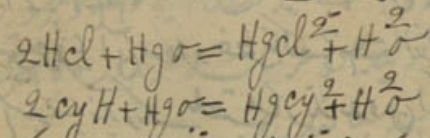 2Hcl + Hgo = Hgcl² + H²o
2cyH + Hgo = Hgcy² + H²o